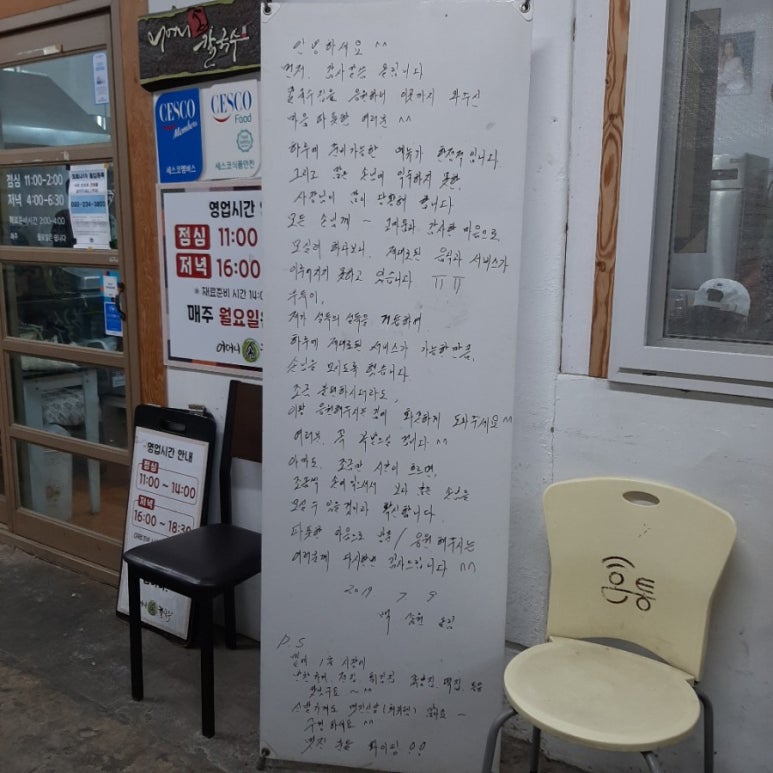 어머니 손 칼국수
CESCO
Members
세스코멤버스
CESCO
Food
세스코식품안전
점심 11:00-2:00
저녁 4:00-6:30
재료준비시간 2:00-4:00
매주 월요일은 쉽니다
영업시간 안
점심 11:00
저녁 16:00
※ 재료준비 시간 14:0
매주 월요일은
어머니
영업시간 안내
점심
11:00 ~ 14:00
저녁
16:00 ~ 18:30
안녕하세요 ^^
먼저, 감사말씀 올립니다
칼국수집을 응원하러 이곳까지 와주신
마음 따뜻한 여러분 ^^
하루에 준비가능한 메뉴가 한정적입니다.
그리고 많은 손님에 익숙하지 못한,
사장님이 많이 당황해 합니다.
모든 손님께 ~ 고마움과 감사한 마음으로,
모실려 하다보니, 제대로된 음식과 서비스가
이루어지지 못하고 있습니다 ㅠㅠ
부득이,
제가 설득의 설득을 거듭하여
하루에 제대로된 서비스가 가능한만큼,
손님을 모시도록 했습니다.
조금 불편하시더라도,
이왕 응원해주시는 것에 화끈하게 도와주세요 ^^
여러분, 꼭 복받으실 겁니다 ^^
아마도, 조금만 시간이 흐르면,
조금씩 손에 익으셔서 보다 많은 손님을
모실 수 있을 것이라 확신합니다.
따뜻한 마음으로 방문 / 응원해주시는
여러분께 다시한번 감사드립니다 ^^
2019 7 9
백 올림
P.S
옆에 1층 시장에
맛난구요 ~ ^^
구경 하세요 ^^
멋진 화이팅 !!